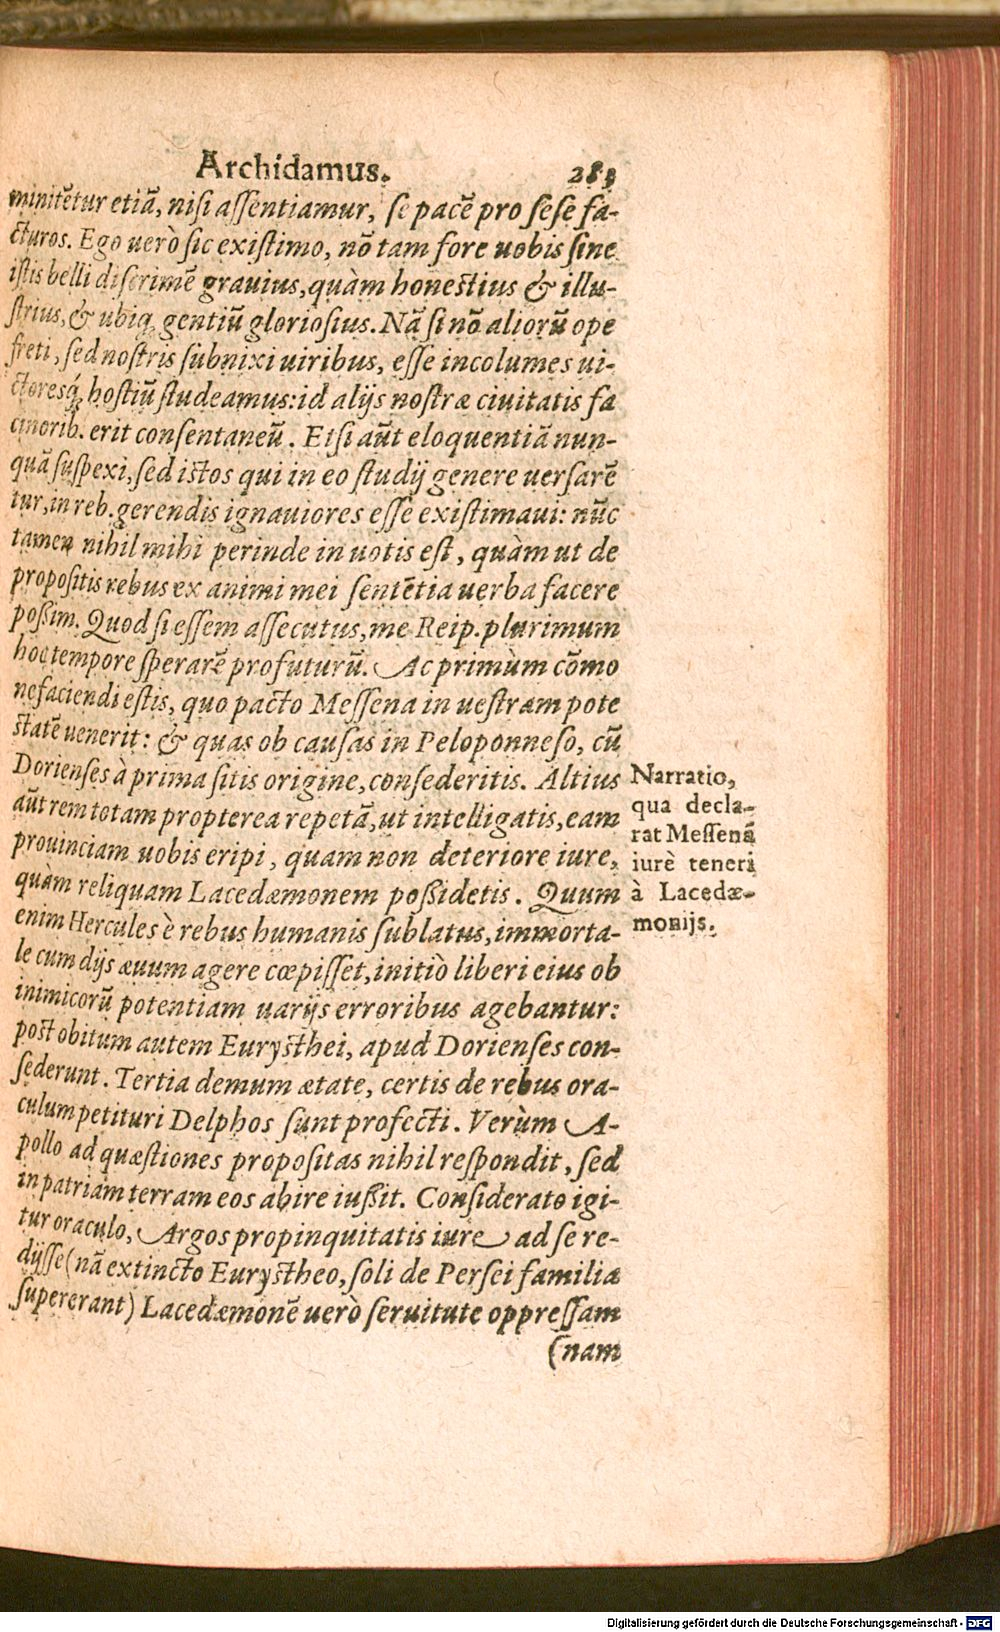 Archidamus. 283
minitētur etiā, nisi assentiamur, se pacē pro sese fa-
cturos. Ego uerò sic existimo, nō tam fore uobis sine
istis belli discrimē grauius, quàm honestius & illu-
strius, & ubiq; gentiū gloriosius. Nā si nō aliorū ope
freti, sed nostris subnixi uiribus, esse incolumes ui-
ctoresq́; hostiū studeamus: id alijs nostræ ciuitatis fa
cinorib. erit consentaneū. Etsi aūt eloquentiā nun-
quā suspexi, sed istos qui in eo studij genere uersarē
tur, in reb. gerendis ignauiores esse existimaui: nūc
tamen nihil mihi perinde in uotis est, quàm ut de
propositis rebus ex animi mei sentētia uerba facere
poßim. Quod si essem assecutus, me Reip. plurimum
hoc tempore sperarē profuturū. Ac primùm cōmo
nefaciendi estis, quo pacto Messena in uestram pote
statē uenerit: & quas ob causas in Peloponneso, cū
Dorienses à prima sitis origine, consederitis. Altius
aūt rem totam propterea repetā, ut intelligatis, eam
prouinciam uobis eripi, quam non deteriore iure,
quàm reliquam Lacedæmonem poßidetis. Quum
enim Hercules è rebus humanis sublatus, immorta-
le cum dijs æuum agere cœpisset, initiò liberi eius ob
inimicorū potentiam uarijs erroribus agebantur:
post obitum autem Eurysthei, apud Dorienses con-
sederunt. Tertia demum ætate, certis de rebus ora-
culum petituri Delphos sunt profecti. Verùm A-
pollo ad quæstiones propositas nihil respondit, sed
in patriam terram eos abire iußit. Considerato igi-
tur oraculo, Argos propinquitatis iure ad se re-
dijsse (nā extincto Eurystheo, soli de Persei familia
supererant) Lacedæmonē uerò seruitute oppressam
(nam
Narratio,
qua decla-
rat Messenā
iurè teneri
à Lacedæ-
monijs.
Digitalisierung gefördert durch die Deutsche Forschungsgemeinschaft - DFG